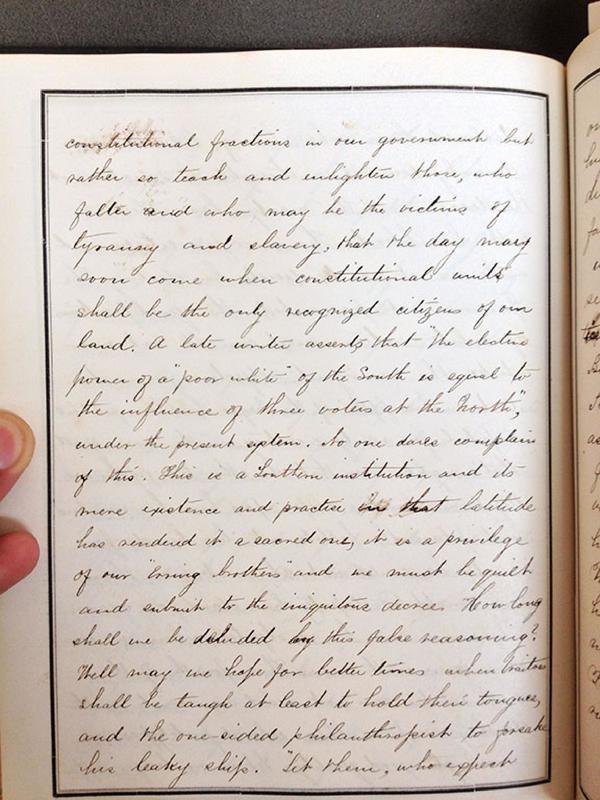 constitutional fractions in our government but
rather so teach and enlighten those, who
falter and who may be the victims of
tyranny and slavery, that the day may
soon come when constitutional units
shall be the only recognized citizens of our
land. A late writer asserts that "the elective
power of a "poor white" of the South is equal to
the influence of three voters at the North",
under the present system. No one dares complain
of this. This is a Southern institution and its
mere existence and practise in that latitude
has rendered it a sacred one, it is a privilege
of our "erring brothers" and we must be quiet
and submit to the iniquitous decree. How long
shall we be deluded by this false reasoning?
Well may we hope for better times when traitors
shall be taugh at least to hold their tongues,
and the one-sided philanthropist to forsake
his leaky ship. "Let them, who expect